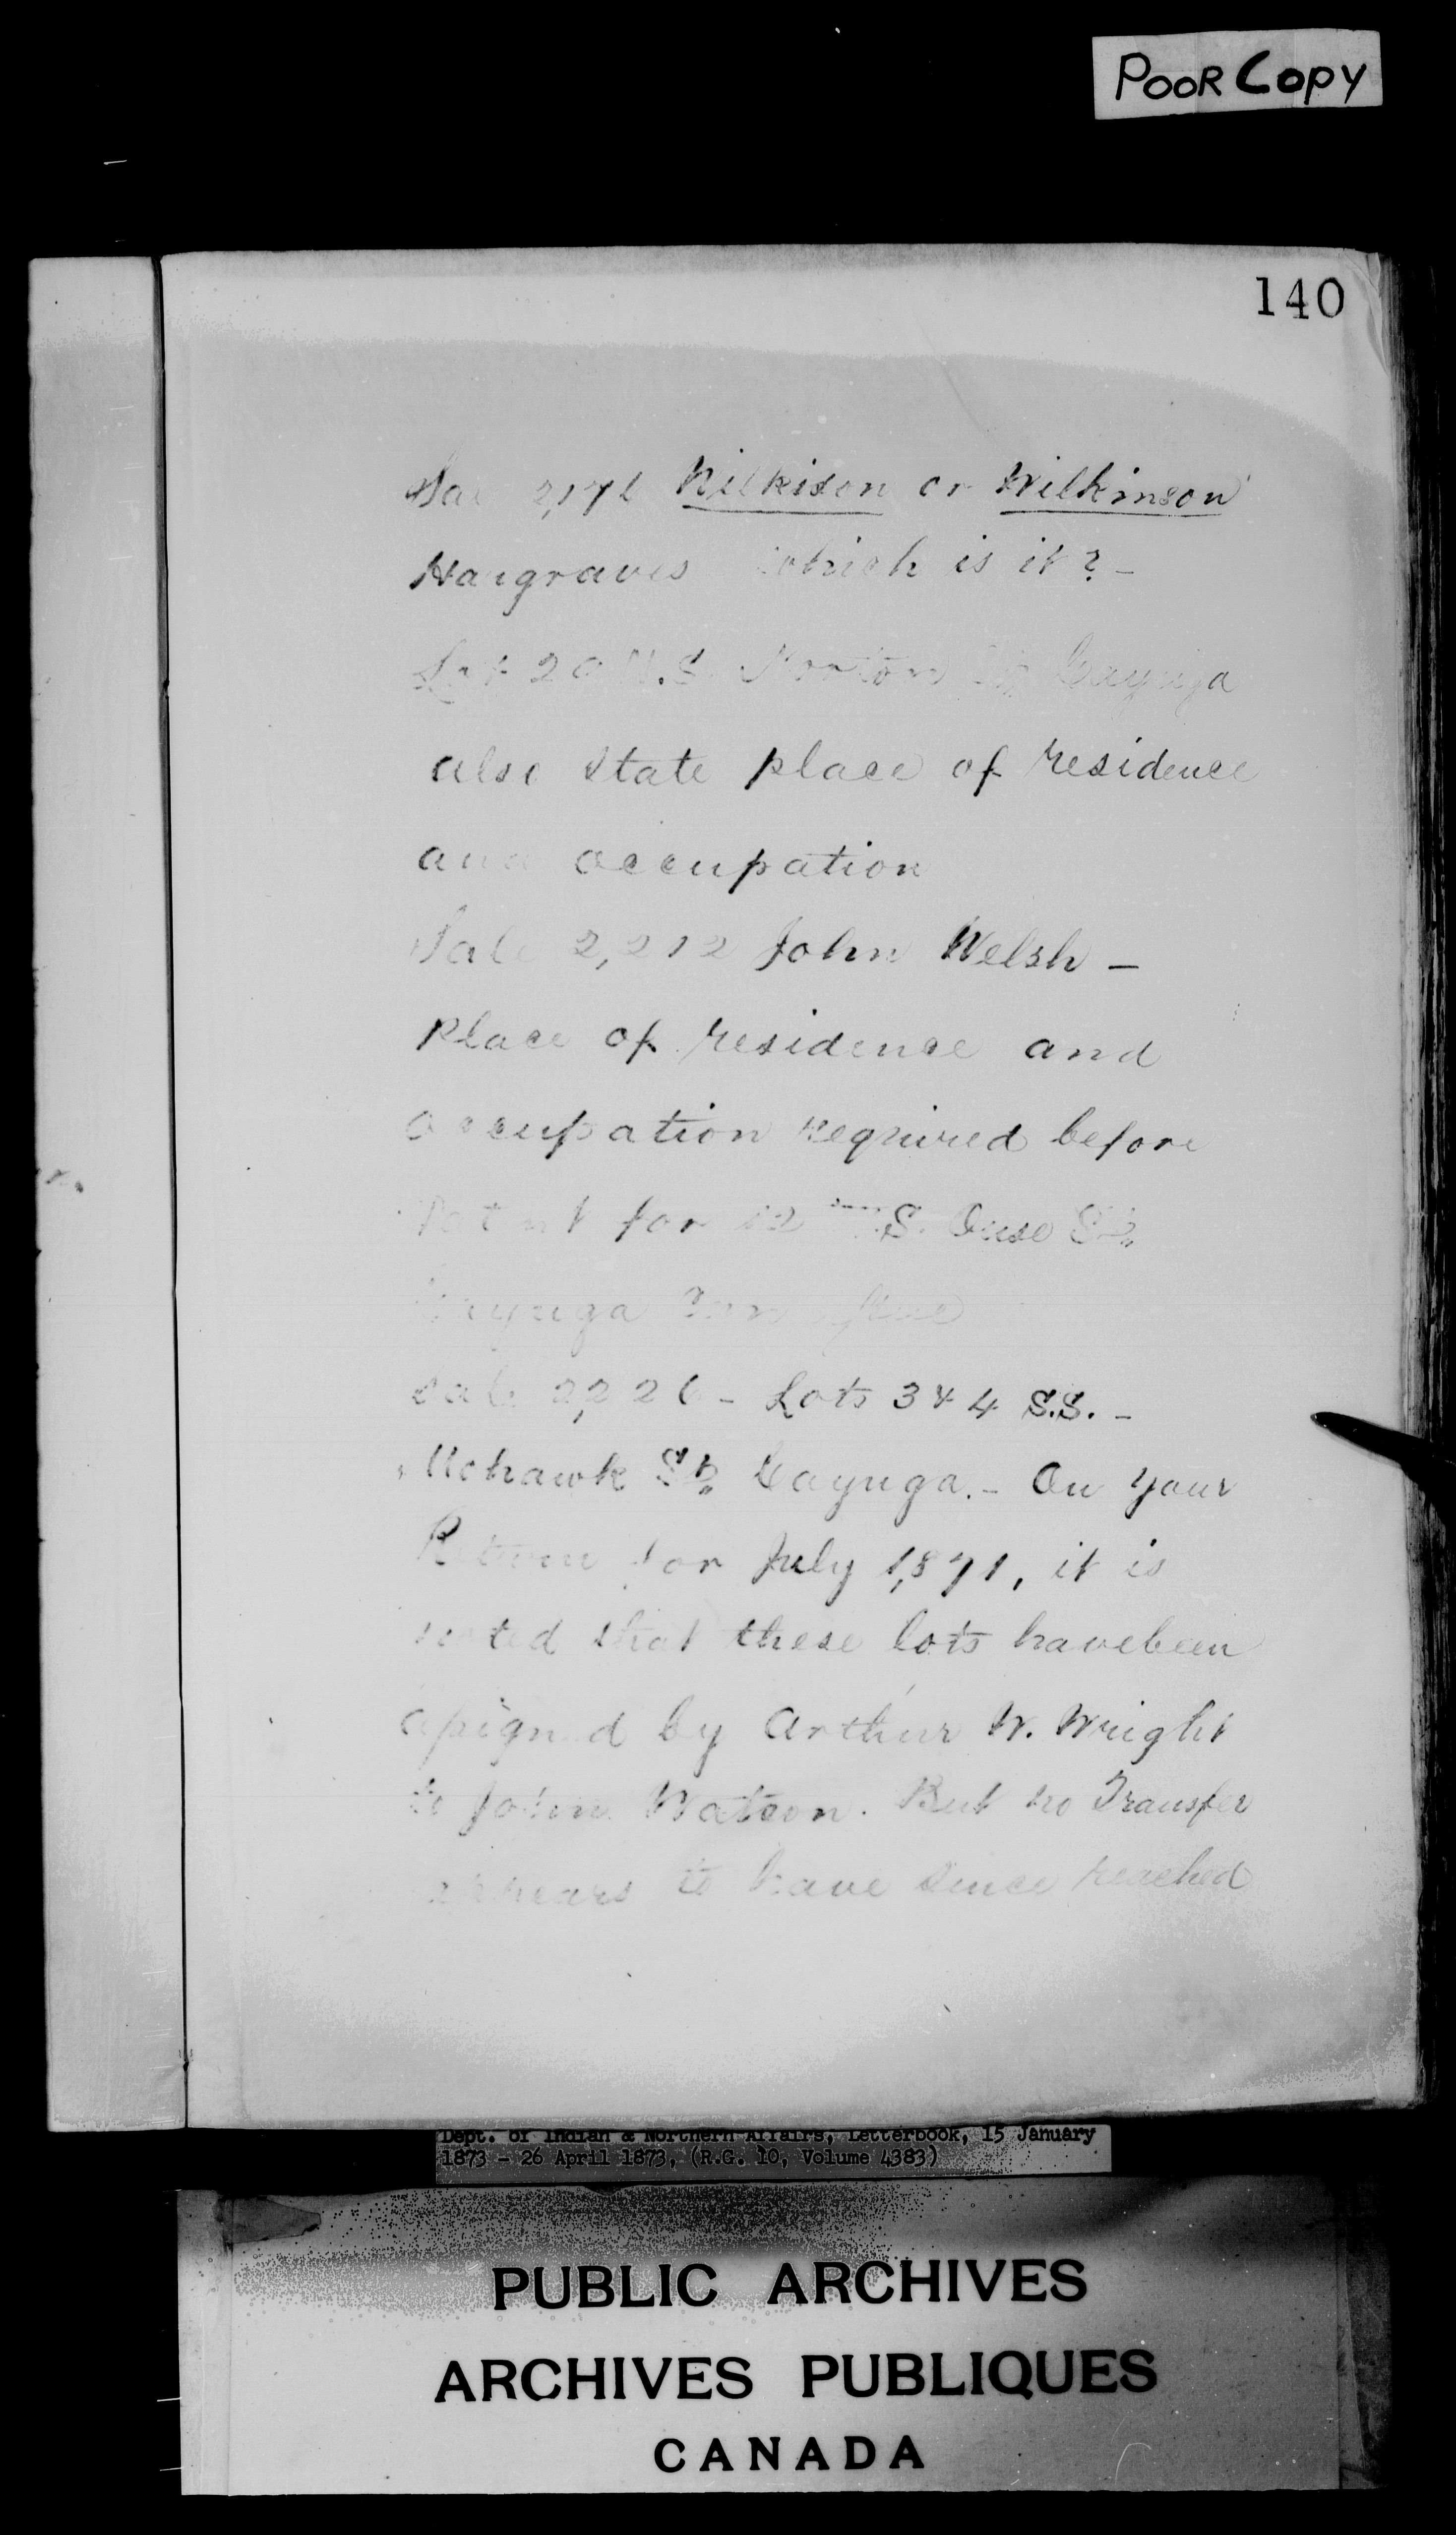 POOR COPY
140
Wilkison or Wilkinson
Hargraves which is it? -
Lot 20 N.S. Norton St. Cayuga
also state place of residence
and occupation
Sale 2,212 John Welsh -
Place of residence and
occupation required before
Patent for 12 S. Ouse St.
Cayuga can
Sale 2,226 - Lots 3 & 4 S.S. -
Mohawk St. Cayuga. - On your
Return for July 1,871, it is
noted that these lots have been
assigned by Arthur W. Wright
to John Watson. But no Transfer
appears to have since reached
Dept. of Indian & Northern Affairs, Letterbook, 15 January
1873 - 26 April 1873, (R.G. 10, Volume 4383)
PUBLIC ARCHIVES
ARCHIVES PUBLIQUES
CANADA